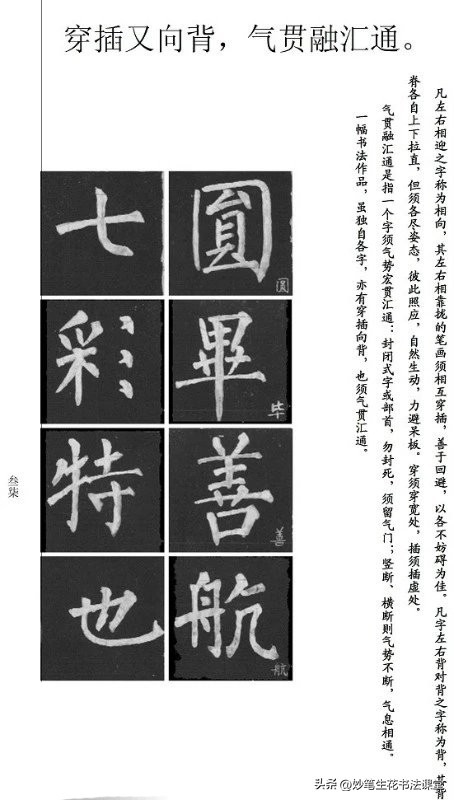 穿插又向背，气贯融汇通。
凡左右相迎之字称为相向，其左右相靠拢的笔画须相互穿插，善于回避，以各不妨碍为佳。凡字左右背对背之字称为背，其背
脊各自上下拉直，但须各尽姿态，彼此照应，自然生动，力避呆板。穿须穿宽处，插须插虚处。
气贯融汇通是指一个字须气势宏贯汇通：封闭式字或部首，勿封死，须留气门；竖断、横断则气势不断，气息相通。
一幅书法作品，虽独自各字，亦有穿插向背，也须气贯汇通。
圓
圆
畢
毕
善
善
航
航
七
彩
特
也
叁柒
头条@妙笔生花书法课堂